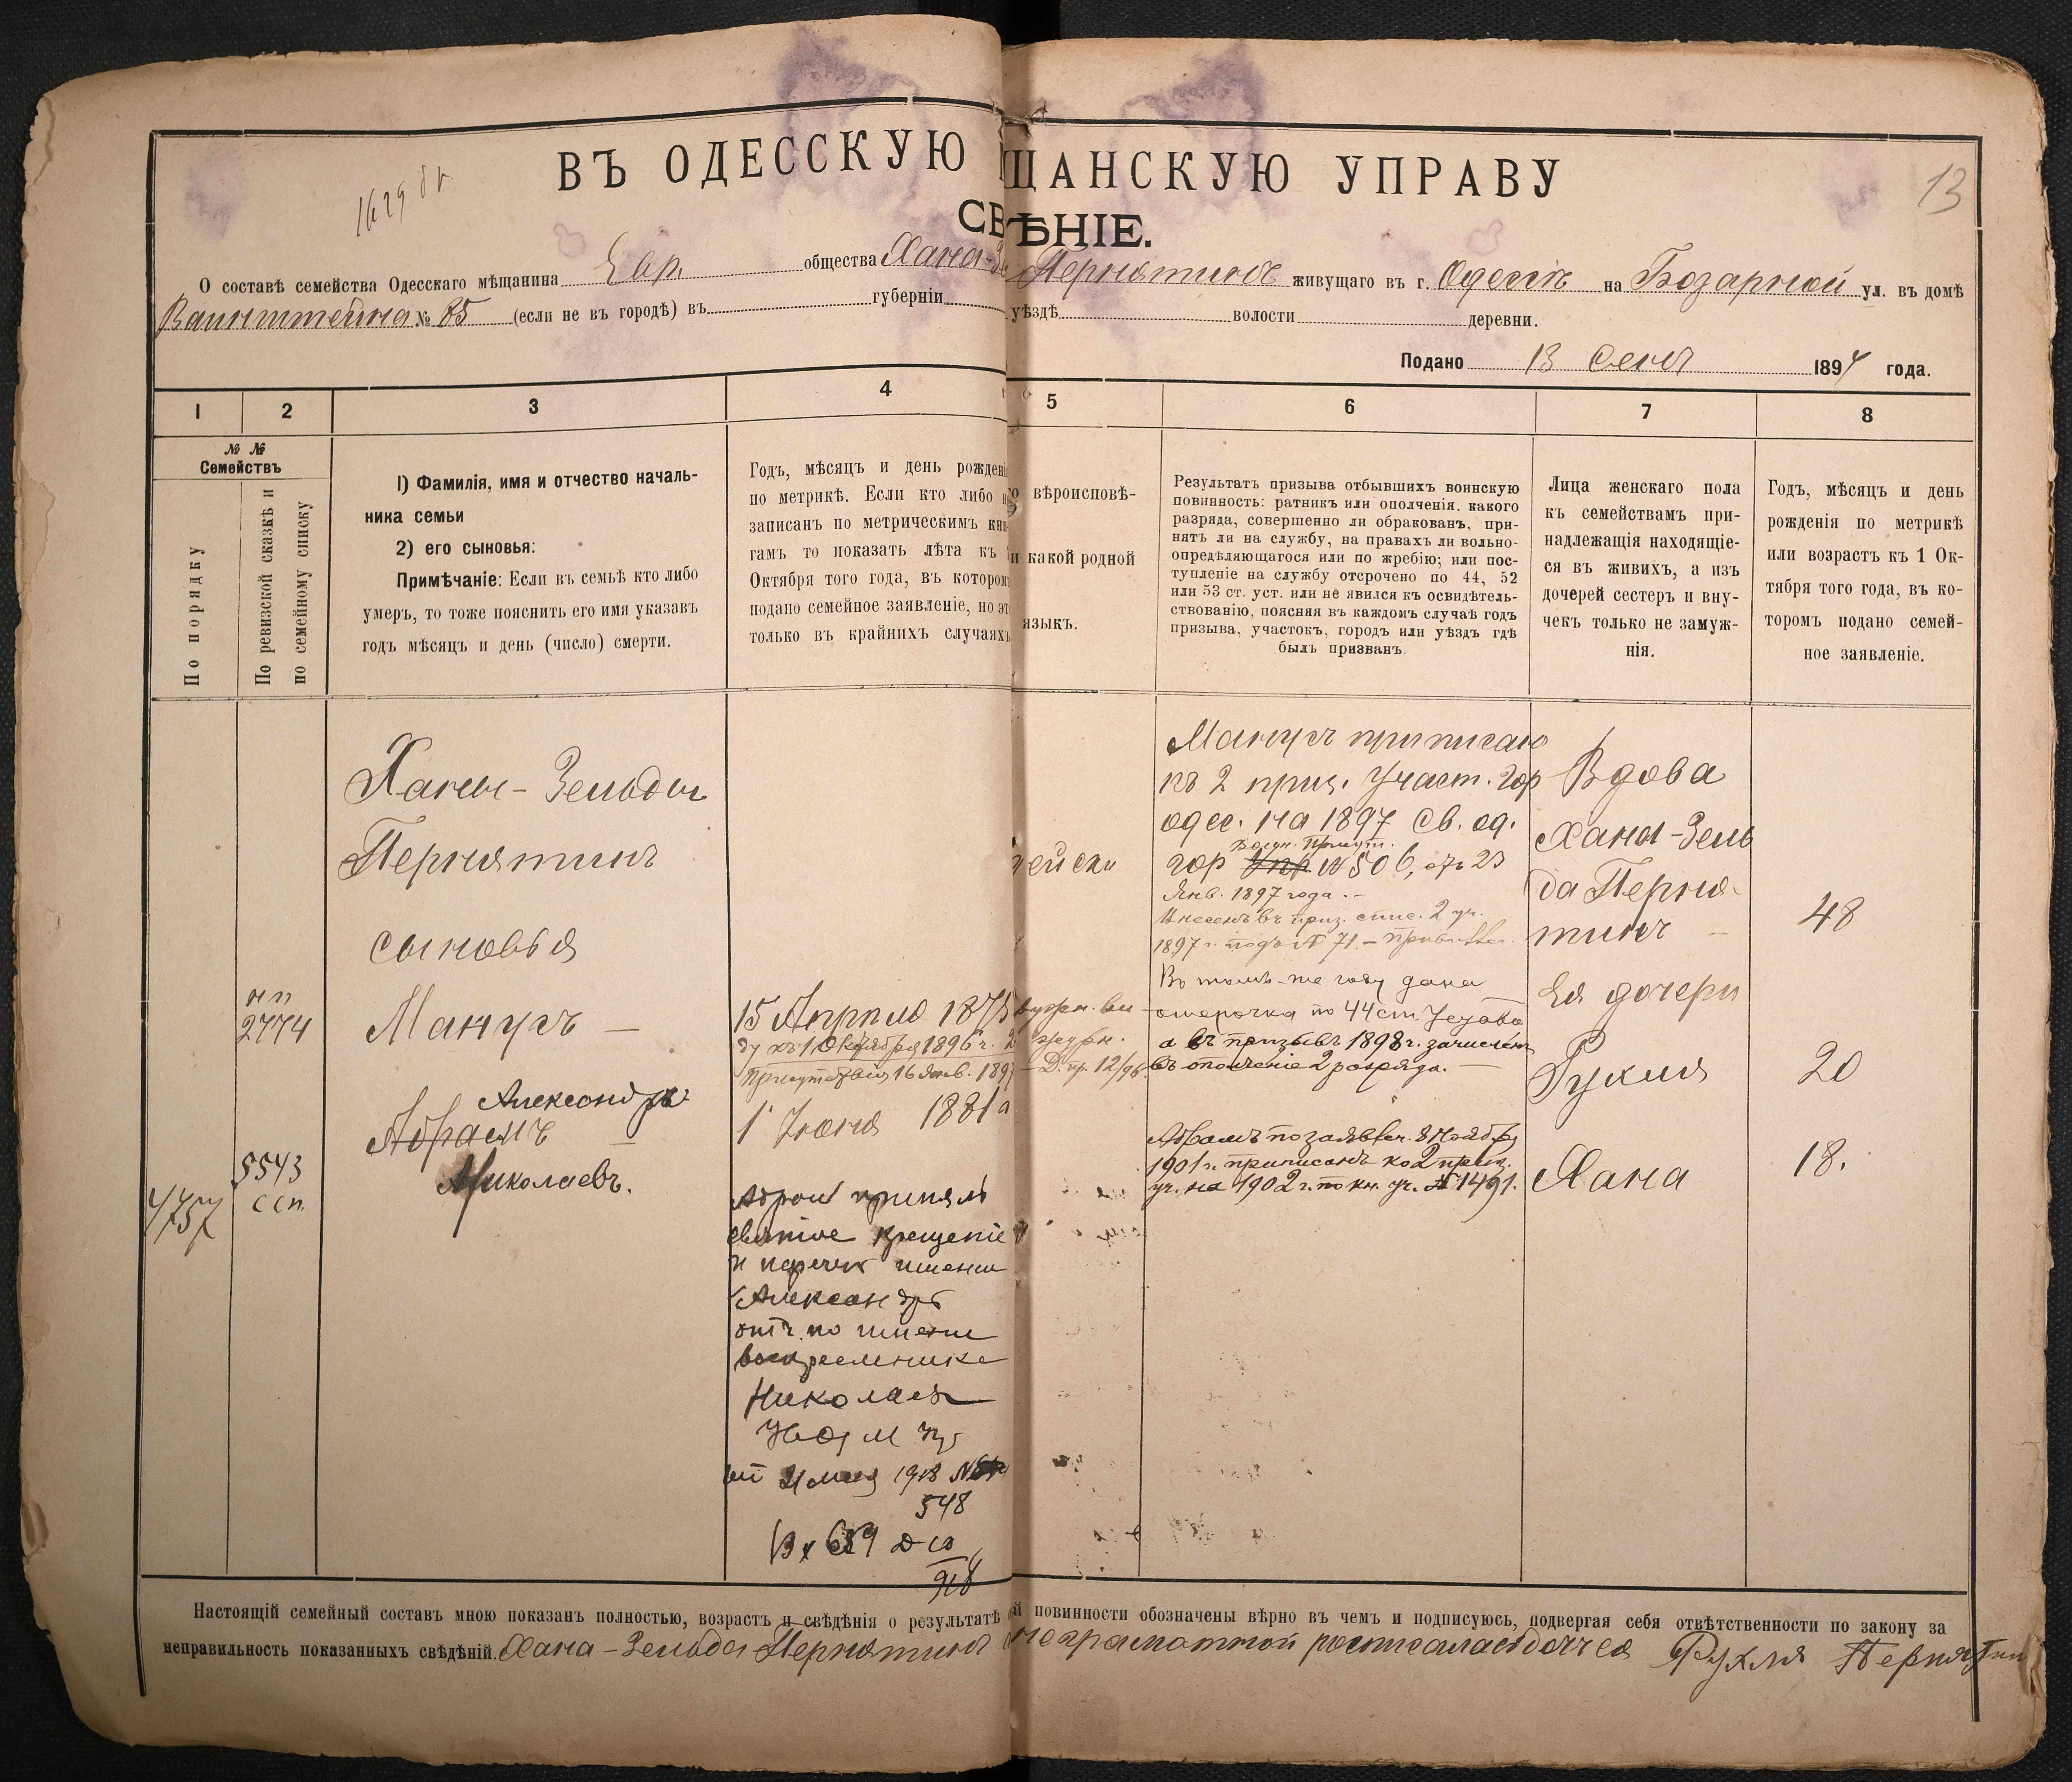 13
1629
ВЪ ОДЕССКУЮ ЩАНСКУЮ УПРАВУ
СВѢНІЕ.
О составѣ семейства Одесскаго мѣщанина Евр. общества Хана-Зе Пернятинъ живущаго въ г. Одессѣ на Базарной ул. въ домѣ
Ваинштейна № 85 (если не въ городѣ) въ губерніи уѣздѣ волости деревни.
Подано 13 Сент 1894 года.
1 2 3 4 5 6 7 8
№ №
Семействъ
По порядку
По ревизской сказкѣ и
по семейному списку
1) Фамилія, имя и отчество началь-
ника семьи
2) его сыновья:
Примѣчаніе: Если въ семьѣ кто либо
умеръ, то тоже пояснить его имя указавъ
годъ мѣсяцъ и день (число) смерти.
Годъ, мѣсяцъ и день рожденi
по метрикѣ. Если кто либо н
записанъ по метрическимъ кни
гамъ то показать лѣта къ
Октября того года, въ котором
подано семейное заявленіе, но эт
только въ крайнихъ случаяхъ
вѣроисповѣ-
и какой родной
языкъ.
Результатъ призыва отбывшихъ воинскую
повинность: ратникъ или ополченія, какого
разряда, совершенно ли обракованъ, при-
нятъ ли на службу, на правахъ ли вольно-
опредѣляющагося или по жребію; или пос-
тупленіе на службу отсрочено по 44, 52
или 53 ст. уст. или не явился къ освидѣтель-
ствованію, поясняя въ каждомъ случаѣ годъ
призыва, участокъ, городъ или уѣздъ гдѣ
былъ призванъ.
Лица женскаго пола
къ семействамъ при-
надлежащія находящіе-
ся въ живихъ, а изъ
дочерей сестеръ и вну-
чекъ только не замуж-
нія.
Годъ, мѣсяцъ и день
рожденія по метрикѣ
или возрастъ къ 1 Ок-
тября того года, въ ко-
торомъ подано семей-
ное заявленіе.
Ханы-Зельды
Пернятинъ
сыновья
2774
Манусъ —
Александръ
Абрамъ —
Николаевъ.
5543
ссп
4757
15 Апрпля 1875
ду къ 1 Октября 1896 г.
Присутствія 16 Янв. 1897
журн.
— Д. пр. 12/96.
1 Іюня 1881
Абрам принялъ
святое крещеніе
и наречен имени
Александръ
отч. по имени
восприемника
Николаевъ
от 21 мая 1918 №
548
Вх 689 Д 10
918
ейски
Манусъ приписан
къ 2 приз. Участ. гор
одес. на 1897 Св. од.
Воин. Присут.
гор Упр № 506, отъ 23
Янв. 1897 года. —
Внесенъ въ приз. спис. 2 уч.
1897 г. подъ № 71. —
Въ томъ-же году дана
отсрочка по 44 ст. Устава
а въ призывъ 1898 г. зачисленъ
въ ополченіе 2 разряда. —
Абрамъ по заявлен. 8 Ноября
1901 г. приписанъ ко 2 приз.
уч. на 1902 г. по кн. уч. № 1491.
Вдова
Хана-Зель
да Перня-
тинъ —
48
Ея дочери
Рухля
20
Хана
18.
Настоящій семейный составъ мною показанъ полностью, возрастъ и свѣдѣнія о результатѣ й повинности обозначены вѣрно въ чемъ и подписуюсь, подвергая себя отвѣтственности по закону за
неправильность показанныхъ свѣдѣній. Хана-Зельда Пернятинъ неграмотной росписалась дочь ея Рухля Пернятин